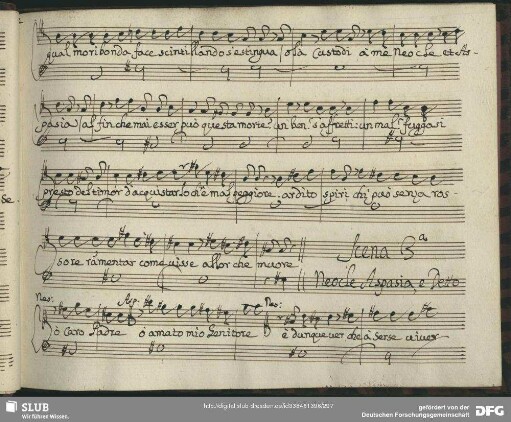 qual moribondo face scintillando s'estingua olà Custodi à mè Neocle et As-
pasia al fin che mai esser può questa morte? un ben? s'affretti: un mal? fuggasi
presto del timor d'acquistarlo ch'è mal peggiore ardito spiri chi può senza ros-
se.
sore ramentar come uisse allor che muore
Scena 3a
Neocle Aspasia, e Detto
Neo: Asp: Neo:
ò Caro Padre ò amato mio Genitore è dunque uer che à Serse uiuer
SLUB
Wir führen Wissen.
gefördert von der
Deutschen Forschungsgemeinschaft
DFG